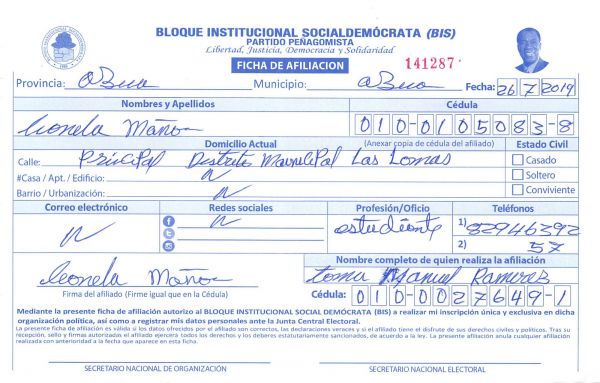 BLOQUE INSTITUCIONAL SOCIALDEMÓCRATA (BIS)
PARTIDO PEÑAGOMISTA
Libertad, Justicia, Democracia y Solidaridad
FICHA DE AFILIACION 141287
Provincia: Azua Municipio: Azua Fecha: 26/7/2019
Nombres y Apellidos Cédula
Leonela Mañon 010-0105083-8
Domicilio Actual (Anexar copia de cédula del afiliado) Estado Civil
Calle: Principal Distrito Municipal Las Lomas Casado
#Casa / Apt. / Edificio: N Soltero
Barrio / Urbanización: N Conviviente
Correo electrónico Redes sociales Profesión/Oficio Teléfonos
N N estudiante 1) 82946392
2) 57
Nombre completo de quien realiza la afiliación
Leonela Mañon Manuel Ramirez
Firma del afiliado (Firme igual que en la Cédula) Cédula: 010-0027649-1
Mediante la presente ficha de afiliación autorizo al BLOQUE INSTITUCIONAL SOCIAL DEMÓCRATA (BIS) a realizar mi inscripción única y exclusiva en dicha
organización política, así como a registrar mis datos personales ante la Junta Central Electoral.
La presente ficha de afiliación es válida si los datos ofrecidos por el afiliado son correctos, las declaraciones veraces y si el afiliado tiene el disfrute de sus derechos civiles y políticos. Tras su
recepción, sello y firmas autorizados el afiliado ejercerá todos los derechos y los deberes estatutariamente sancionados, de acuerdo a la ley. La presente afiliación anula cualquier afiliación
realizada con anterioridad a la fecha que aparece en esta ficha.
SECRETARIO NACIONAL DE ORGANIZACIÓN SECRETARIO NACIONAL ELECTORAL